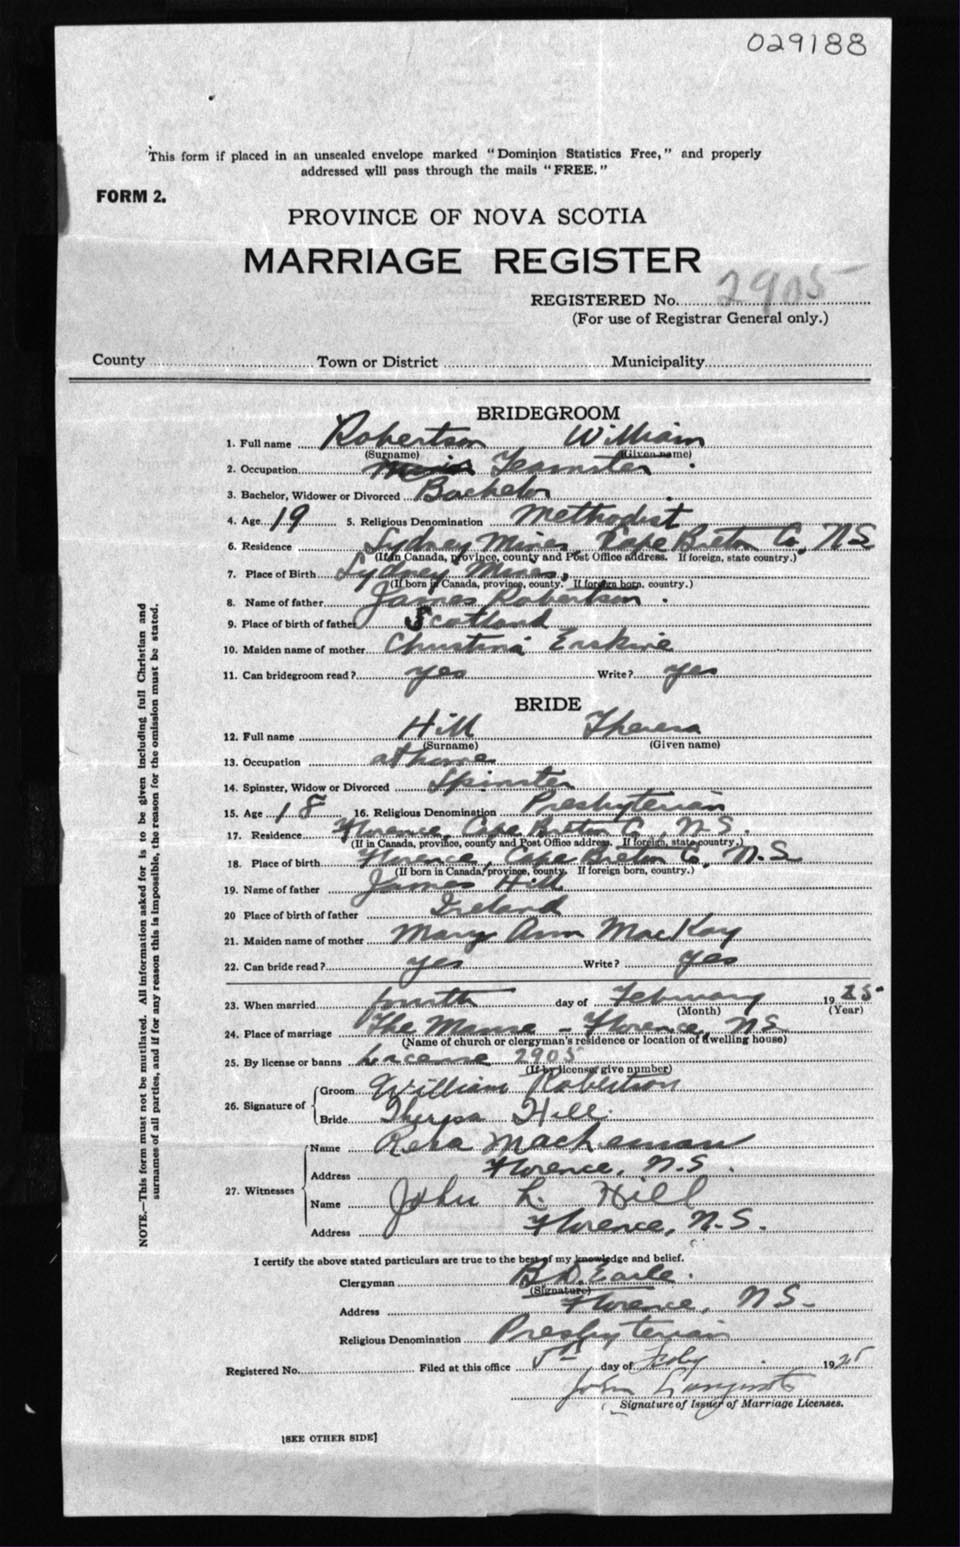 029188
This form if placed in an unsealed envelope marked "Dominion Statistics Free," and properly
addressed will pass through the mails "FREE."
FORM 2.
PROVINCE OF NOVA SCOTIA
MARRIAGE REGISTER
REGISTERED No. 2905
(For use of Registrar General only.)
County Town or District Municipality
BRIDEGROOM
1. Full name Robertson William
(Surname) (Given name)
2. Occupation Teamster
3. Bachelor, Widower or Divorced Bachelor
4. Age 19 5. Religious Denomination Methodist
6. Residence Sydney Mines, Cape Breton Co, N.S
(If in Canada, province, county and Post Office address. If foreign, state country.)
7. Place of Birth Sydney Mines,
(If born in Canada, province, county. If foreign born, country.)
8. Name of father James Robertson.
9. Place of birth of father Scotland
10. Maiden name of mother Christina Erskine
11. Can bridegroom read? yes Write? yes
BRIDE
12. Full name Hill Theresa
(Surname) (Given name)
13. Occupation at home
14. Spinster, Widow or Divorced Spinster
15. Age 18 16. Religious Denomination Presbyterian
17. Residence Florence, Cape Breton Co, N.S.
(If in Canada, province, county and Post Office address. If foreign, state country.)
18. Place of birth Florence, Cape Breton Co, N.S
(If born in Canada, province, county. If foreign born, country.)
19. Name of father James Hill
20 Place of birth of father Ireland
21. Maiden name of mother Mary Ann MacKay
22. Can bride read? yes Write? yes
23. When married fourth day of February 1925
(Month) (Year)
24. Place of marriage The Manse - Florence, N.S
(Name of church or clergyman's residence or location of dwelling house)
25. By license or banns License 2905
(If by license give number)
26. Signature of Groom William Robertson
Bride Theresa Hill.
27. Witnesses Name Rena
Address Florence, N.S.
Name John L. Hill
Address Florence, N.S.
I certify the above stated particulars are true to the best of my knowledge and belief.
Clergyman B.D. Earle.
(Signature)
Address Florence, N.S.
Religious Denomination Presbyterian
Registered No. Filed at this office 5th day of Feby 1925
John
Signature of Issuer of Marriage Licenses.
[SEE OTHER SIDE]
NOTE.—This form must not be mutilated. All information asked for is to be given including full Christian and
surnames of all parties, and if for any reason this is impossible, the reason for the omission must be stated.